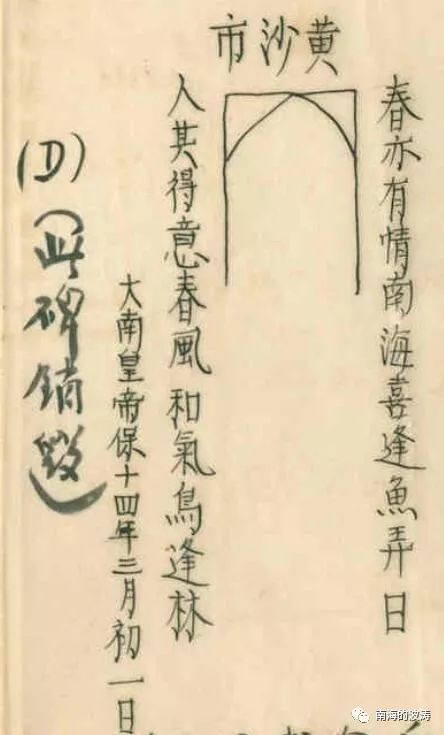 黄沙市
春亦有情南海喜逢魚弄日
人其得意春風和氣鳥逢林
大南皇帝保十四年三月初一日
(D)(此碑銷毀)
南海的波涛